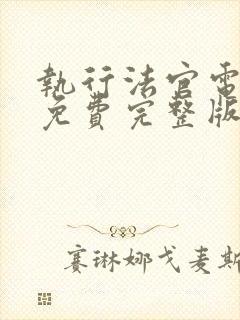 執行法官電
免費完整版
赛琳娜戈麦斯